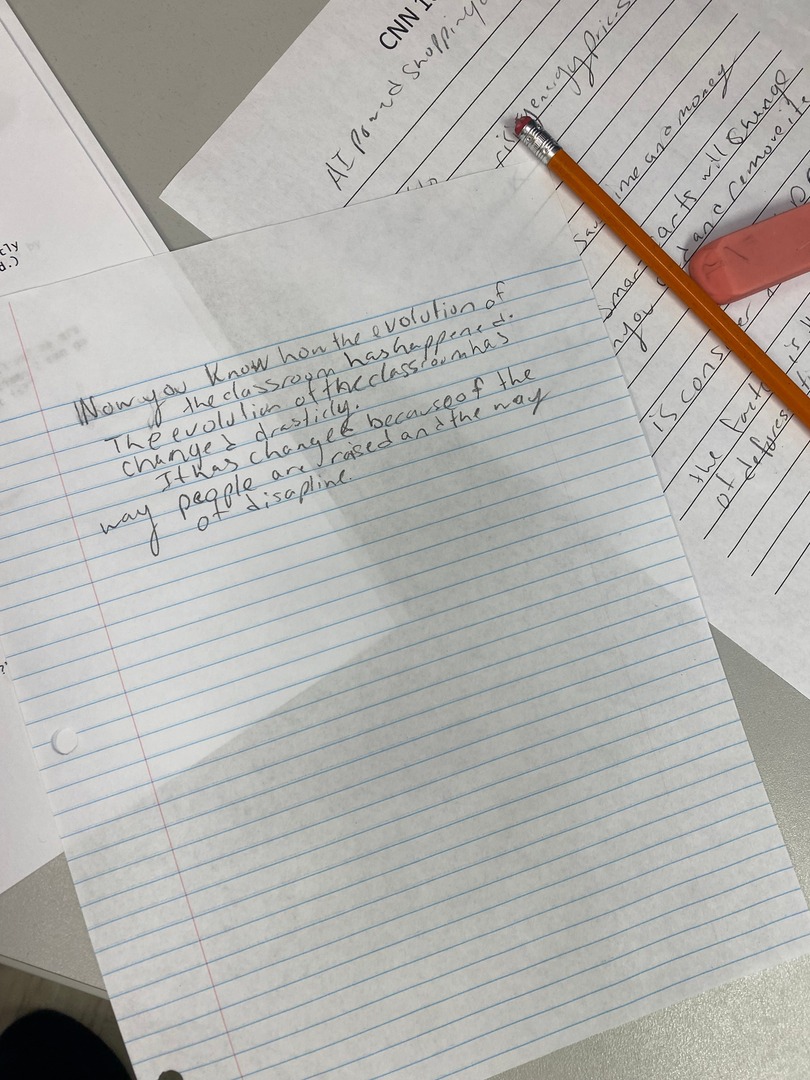 Now you know how the evolution of
the classroom has happened.
The evolution of the classroom has
changed drasticly.
It has changed because of the
way people are raised and the way
of disapline.
CNN 1
AI powred shopping
energy prices
time and money
arts will change
and remove ite
you
is cons
the facto
of defores
is
tly
d.)